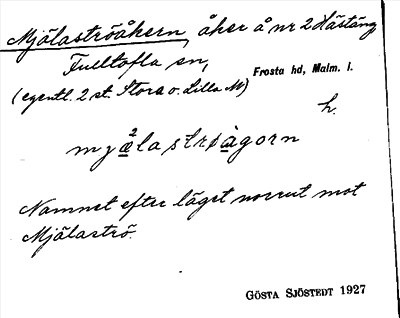 Mjälaströåkern, åker å nr 2 Hästäng
Fulltofta sn,
Frosta hd, Malm. l.
(egentl. 2 st. Stora o. Lilla M)
h.
myæ²lastrøàgorn
Namnet efter läget norrut mot
Mjälaströ.
GÖSTA SJÖSTEDT 1927